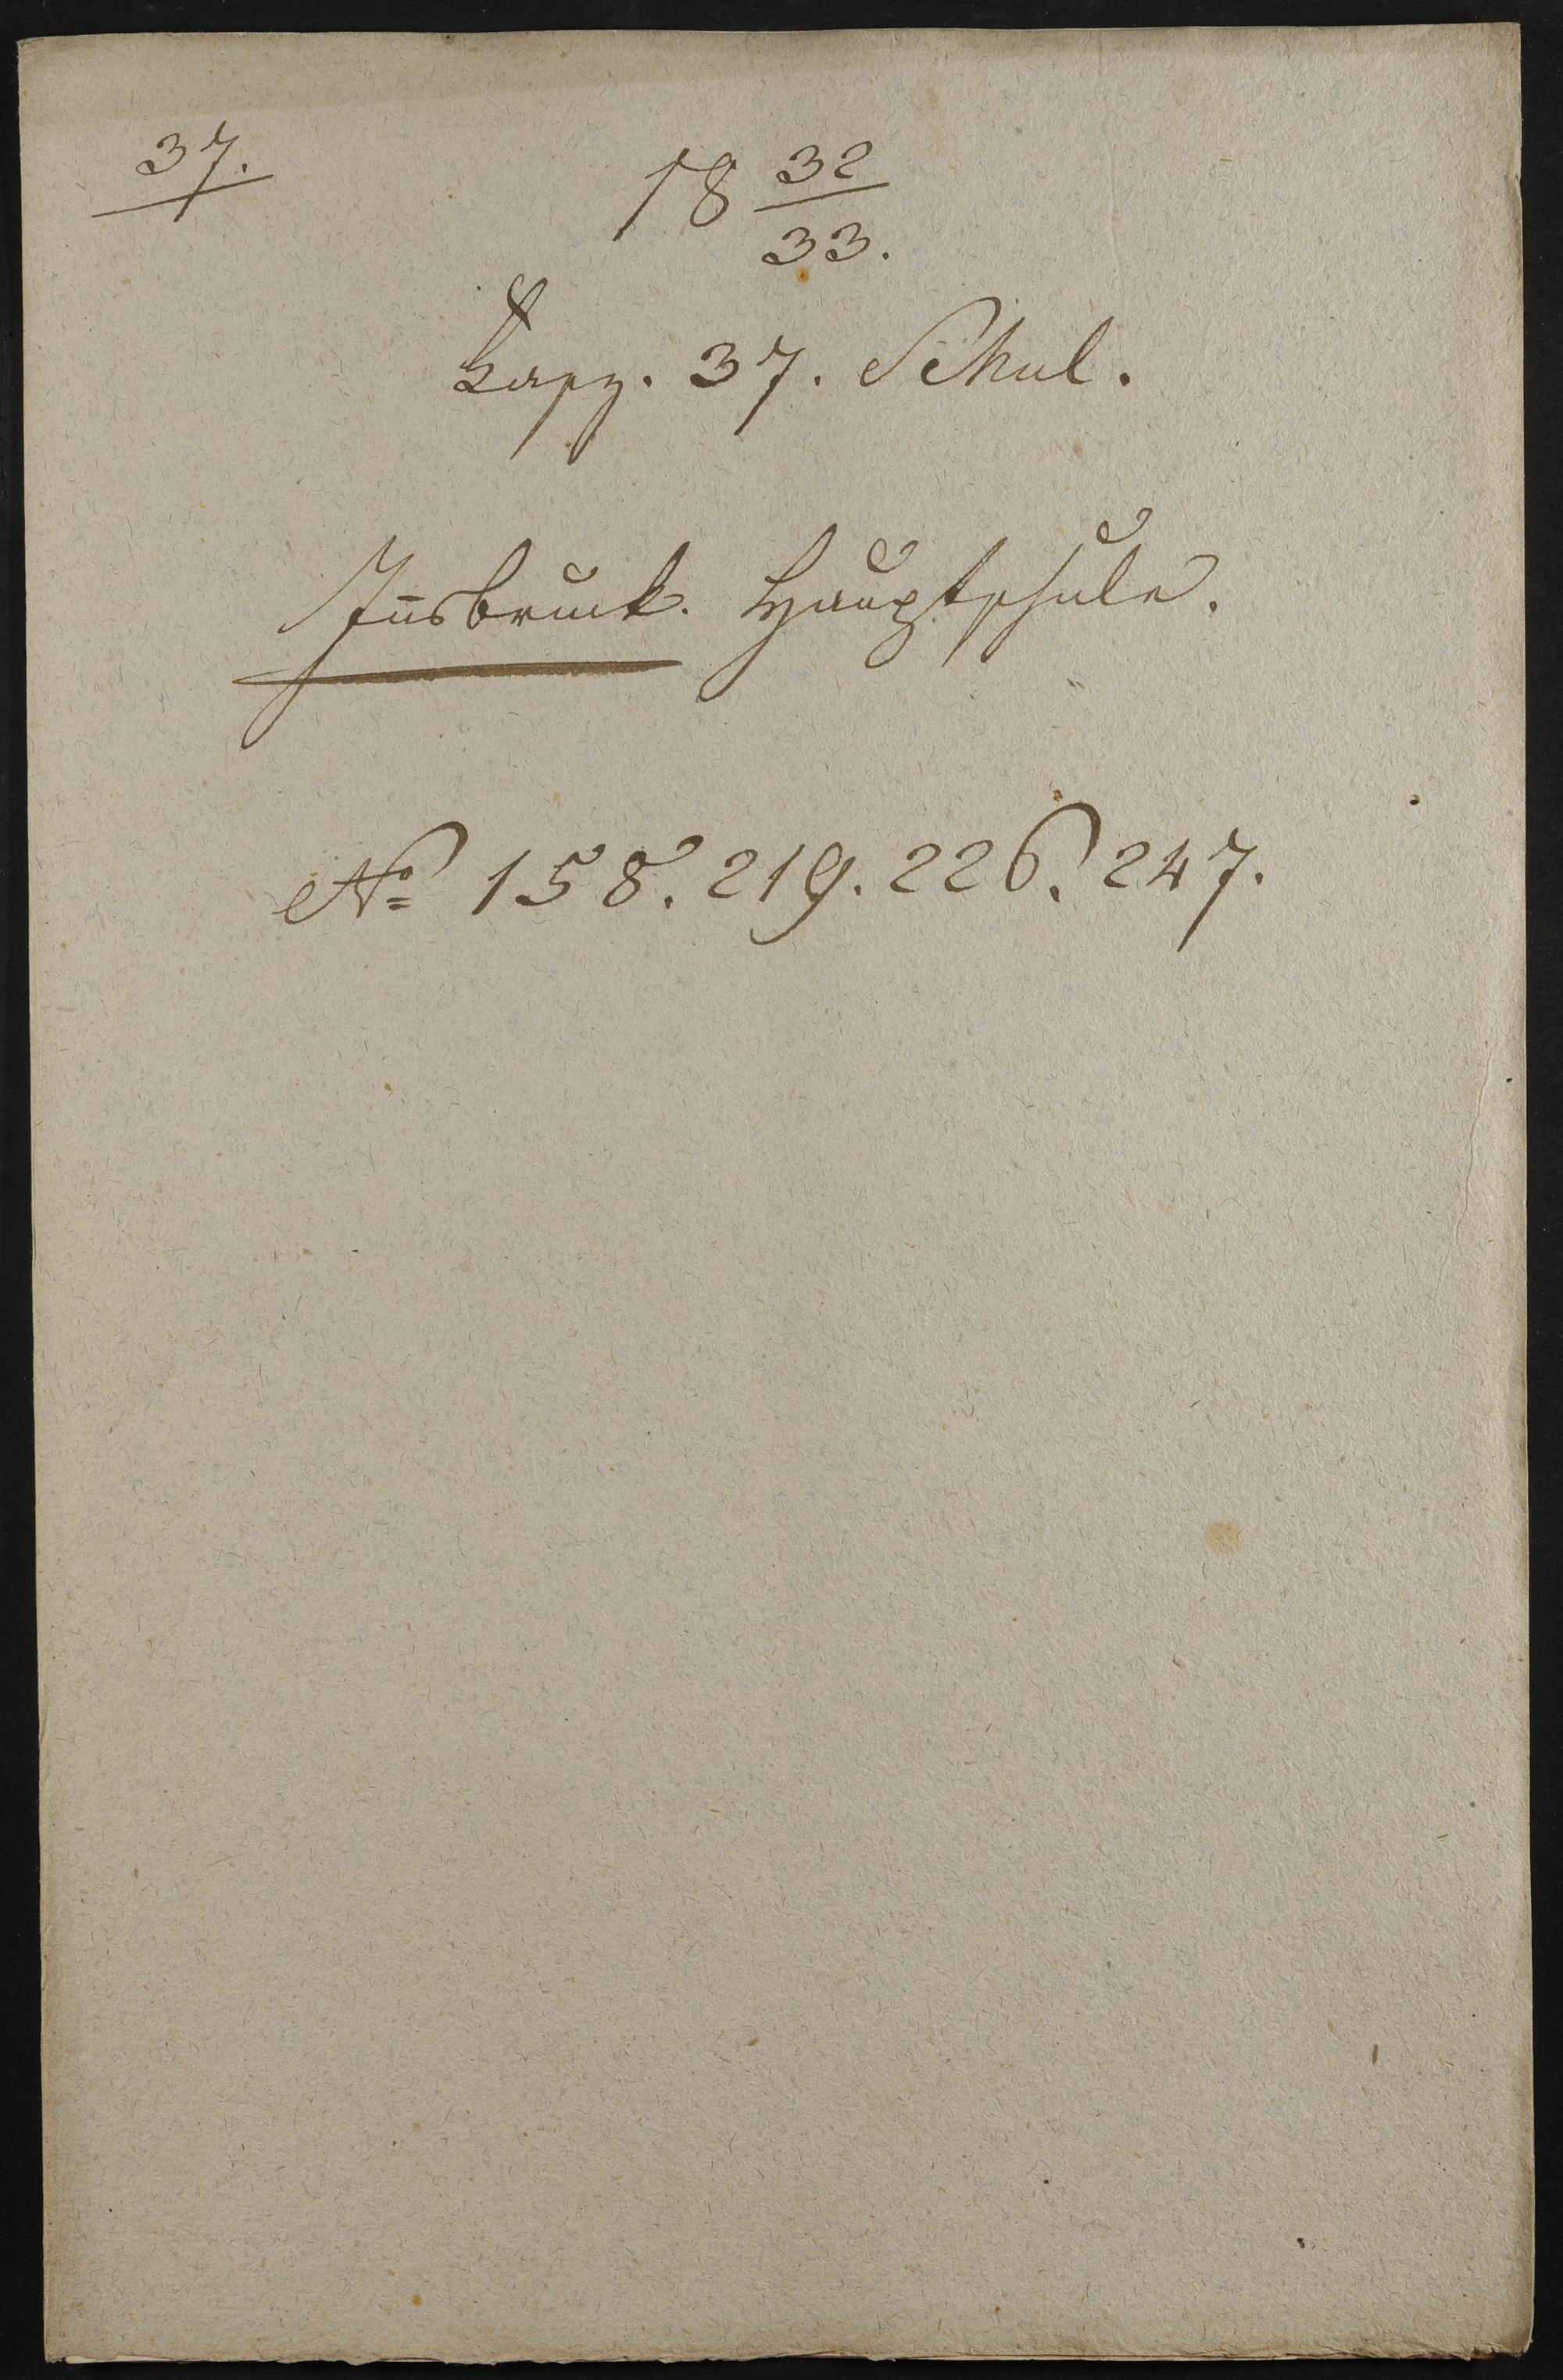 37.
18 32/33.
Fasz. 37. Schul.
Iñsbruck. Hauptschule.
No 158. 219. 226. 247.